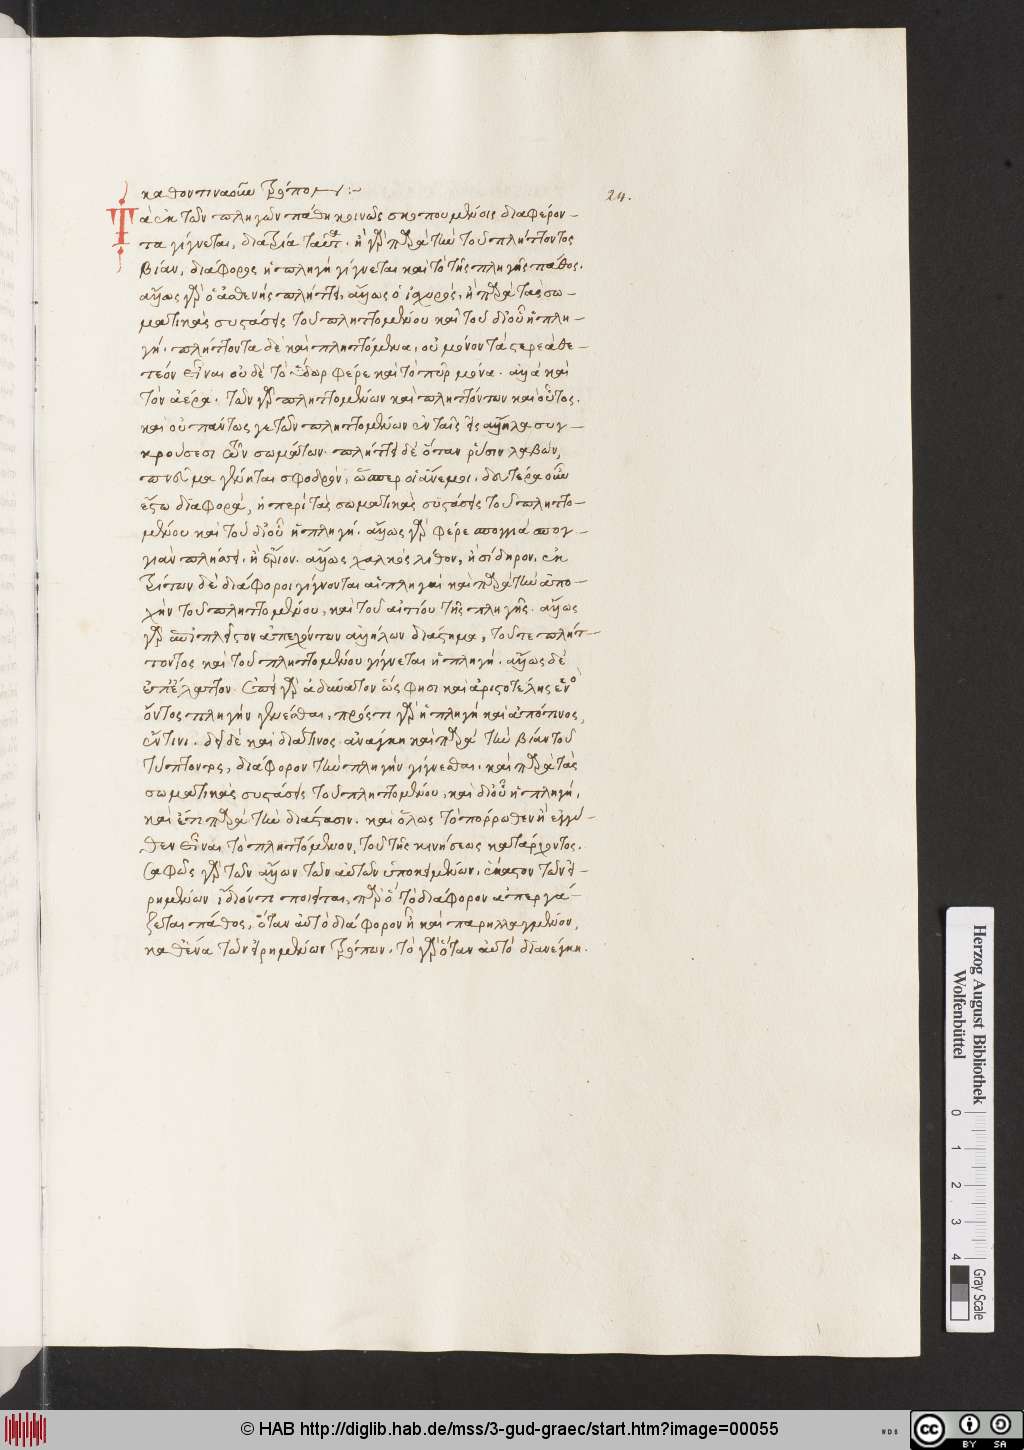 καθοντιναοῦν τρόπον :~
24.
Τὰ ἐκ τῶν πληγῶν πάθη κοινῶς σκοπουμένοις διαφέρον-
τα γίγνεται, διὰ τρία ταῦτα. ἢ γὰρ παρὰ τὴν τοῦ πλήττοντος
βίαν, διάφορος ἡ πληγὴ γίγνεται καὶ τὸ τῆς πληγῆς πάθος.
ἄλλως γὰρ ὁ ἀσθενὴς πλήττει, ἄλλως ὁ ἰσχυρός. ἢ παρὰ τὰς σω-
ματικὰς συστάσεις τοῦ πληττομένου καὶ τοῦ δι' οὗ ἡ πλη-
γή. πλήττοντα δὲ καὶ πληττόμενα, οὐ μόνον τὰ στερεὰ θε-
τέον εἶναι οὐδὲ τὸ ὕδωρ φέρε καὶ τὸ πῦρ μόνα. ἀλλὰ καὶ
τὸν ἀέρα. τῶν γὰρ πληττομένων καὶ πληττόντων καὶ οὗτος.
καὶ οὐ πάντως γε τῶν πληττομένων ἐν ταῖς εἰς ἄλληλα συγ-
κρούσεσι τῶν σωμάτων. πλήττει δὲ ὅταν ῥύσιν λαβὼν,
πνεῦμα γένηται σφοδρὸν, ὥσπερ οἱ ἄνεμοι. δευτέρα οὖν
ἔξω διαφορὰ, ἡ περὶ τὰς σωματικὰς συστάσεις τοῦ πληττο-
μένου καὶ τοῦ δι' οὗ ἡ πληγή. ἄλλως γὰρ φέρε σπογγιὰ σπογ-
γιὰν πλήσσει. ἢ ἔριον. ἄλλως χαλκὸς λίθον, ἢ σίδηρον. ἐκ
τρίτων δὲ διάφοροι γίγνονται αἱ πληγαὶ καὶ παρὰ τὴν ἀπο-
χὴν τοῦ πληττομένου, καὶ τοῦ αἰτίου τῆς πληγῆς. ἄλλως
γὰρ ἐπὶ πλεῖστον ἀπεχόντων ἀλλήλων διάστημα, τοῦ τε πλήτ-
τοντος καὶ τοῦ πληττομένου γίγνεται ἡ πληγή. ἄλλως δὲ
ἐπ' ἔλαττον. ἐπεὶ γὰρ ἀδύνατον ὥς φησι καὶ ἀριστοτέλης ἑνὸς
ὄντος πληγὴν γενέσθαι, πρός τι γὰρ ἡ πληγὴ καὶ ἀπό τινος,
ἔν τινι. δεῖ δὲ καὶ διά τινος. ἀνάγκη καὶ παρὰ τὴν βίαν τοῦ
τύπτοντος, διάφορον τὴν πληγὴν γίγνεσθαι. καὶ παρὰ τὰς
σωματικὰς συστάσεις τοῦ πληττομένου, καὶ δι' οὗ ἡ πληγή,
καὶ ἔτι παρὰ τὴν διάστασιν. καὶ ὅλως τὸ πόρρωθεν ἢ ἐγγύ-
θεν εἶναι τὸ πληττόμενον, τοῦ τῆς κινήσεως κατάρχοντος.
Σαφῶς γὰρ τῶν ἄλλων τῶν αὐτῶν ὑποκειμένων, ἕκαστον τῶν εἰ-
ρημένων ἴδιόν τι ποιεῖται, παρ' ὃ τὸ διάφορον ἀπεργά-
ζεται πάθος, ὅταν αὐτὸ διάφορον ᾖ καὶ παρηλλαγμένον,
καθ' ἕνα τῶν εἰρημένων τρόπων. τὸ γὰρ ὅταν αὐτὸ διανέγκη.
Herzog August Bibliothek
Wolfenbüttel
0 1 2 3 4
Gray Scale
© HAB http://diglib.hab.de/mss/3-gud-graec/start.htm?image=00055
WDB
cc BY SA